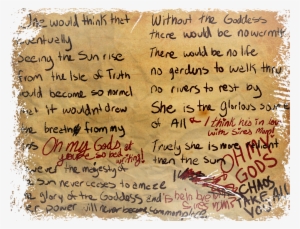 One would think that
eventually
seeing the Sun rise
From the Isle of Truth
would become so normal
it wouldn't draw
the breath from my
Oh my Gods
so bad
writing!
however the majesty of
the sun never ceases to amaze
the glory of the Goddess and
power will never become commonplace
Without the Goddess
there would be no warmth
There would be no life
no gardens to walk thru
no rivers to rest by
She is the glorious source
of All
I think he's in love
with Sire's Mom!
Truely she is more radiant
then the Sun
OH MY
GODS
CHAOS
TAKE ALL
YOU